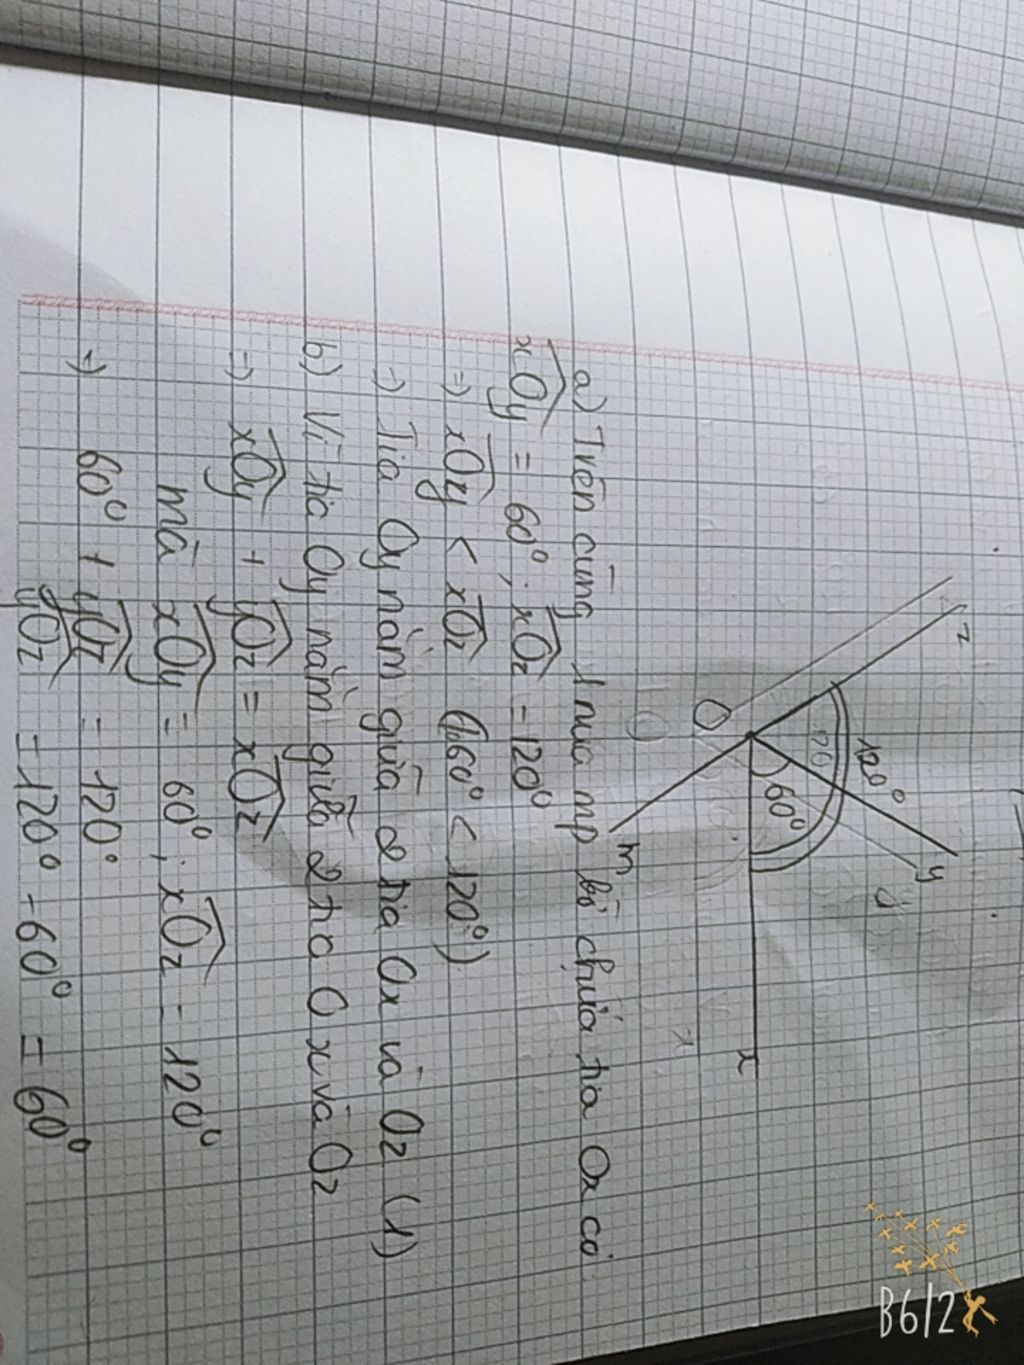 z
120°
y
60°
O
x
m
a) Trên cùng 1 nửa mp bờ chứa tia Ox có
xOy = 60°; xOz = 120°
=> xOy < xOz (60° < 120°)
=> Tia Oy nằm giữa 2 tia Ox và Oz (1)
b) Vì tia Oy nằm giữa 2 tia Ox và Oz
=> xOy + yOz = xOz
mà xOy = 60°; xOz = 120°
=> 60° + yOz = 120°
yOz = 120° - 60° = 60°
B6/2